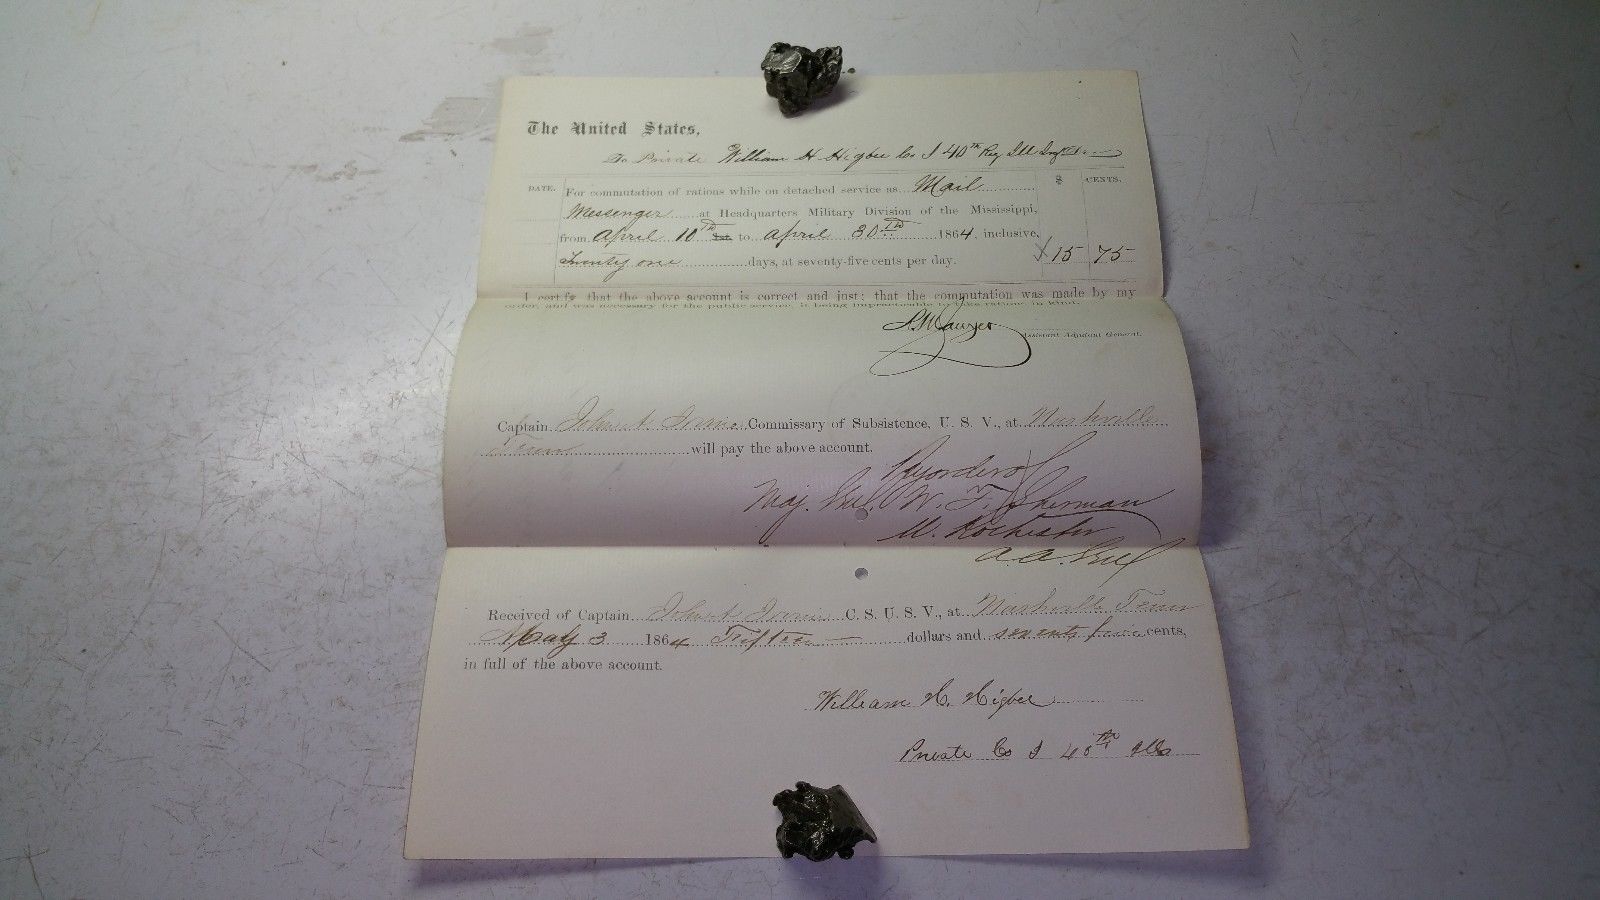 The United States,
To Private William H Higbee Co I 40th Reg Ill Inf
DATE. $ CENTS.
For commutation of rations while on detached service as Mail
Messenger at Headquarters Military Division of the Mississippi,
from April 10th to April 30th 1864, inclusive,
Twenty one days, at seventy-five cents per day. 15 75
I certify that the above account is correct and just; that the commutation was made by my
order, and was necessary for the public service, it being impracticable to take rations in kind.
Assistant Adjutant General.
Captain John Commissary of Subsistence, U. S. V., at Nashville
Tenn will pay the above account.
By order of
Maj. Genl. W. T. Sherman
M. Rochester
A. A. Genl
Received of Captain John C. S. U. S. V., at Nashville Tenn
May 3 1864 Fifteen dollars and seventy five cents,
in full of the above account.
William H. Higbee
Private Co I 40th Ills